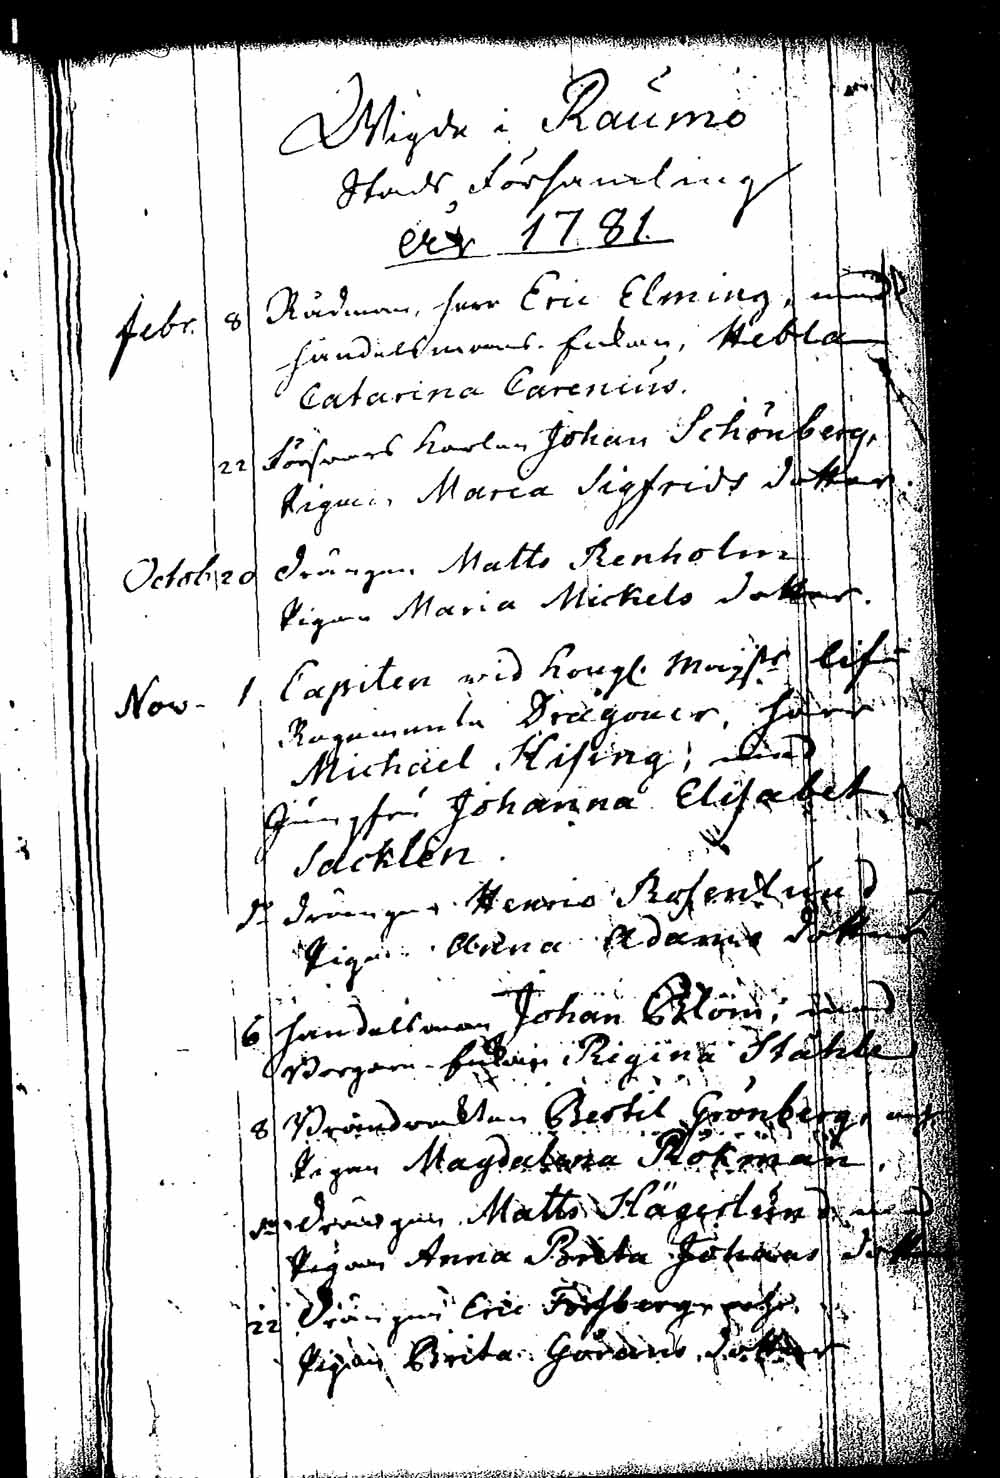 Wigde i Raumo
Stads Församling
år 1781.
febr. 8 Rådman, herr Eric Elming, med
handelsmans enkan, Hebla
Catarina Carenius.
22 Försvars Karlen Johan Schönberg,
Pigan, Maria Sigfrids dotter.
Octob. 20 Drängen Matts Renholm
Pigan Maria Mickels dotter.
Nov. 1 Capiten vid Kongl. Maijts lif
Regemente Dragoner, herr
Michael Hising; med
Jungfru Johanna Elisabet
Sacklen.
do Drängen Henric Rosenlund
Pigan Anna Adams dotter
6 handelsman Johan Blom; med
Borgare enkan Rigina Ståhle
8 Bertil Grönberg, och
Pigan Magdalena Rökman.
do Drängen Matts Hägerlund med
Pigan Anna Brita Johans dotter
22 Drängen Eric Forsberg och
Pigan Brita Görans dotter